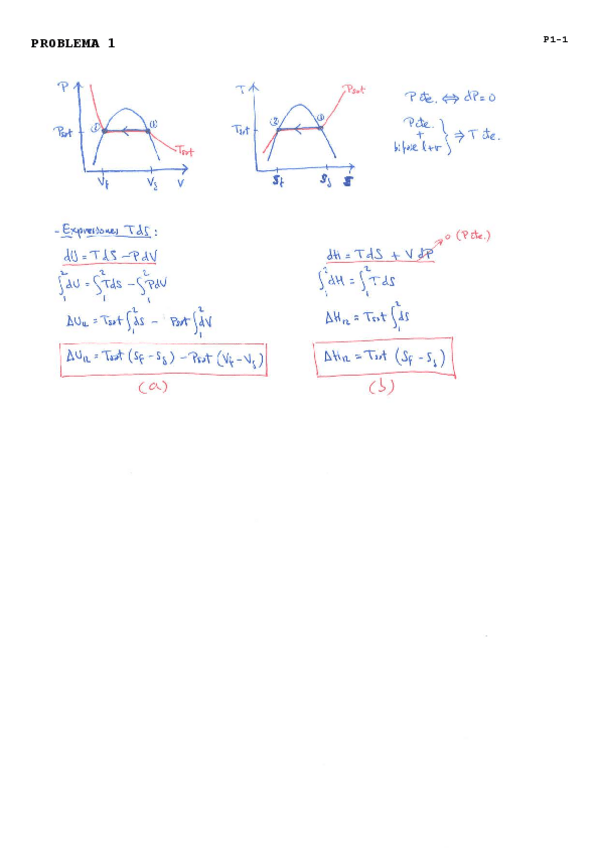 PROBLEMA 1
P1-1
P
Psat
②
①
Tsat
Vf
Vg
V
T
Tsat
②
①
Psat
Sf
Sg
S
P cte. ⇔ dP=0
P cte.
+
bifase l+v
⇒ T cte.
- Expresiones TdS:
dU = TdS - PdV
∫₁²dU = ∫₁²TdS - ∫₁²PdV
ΔU₁₂ = Tsat ∫₁²dS - Psat ∫₁²dV
ΔU₁₂ = Tsat (Sf - Sg) - Psat (Vf - Vg)
(a)
dH = TdS + VdP
0 (P cte.)
∫₁²dH = ∫₁²TdS
ΔH₁₂ = Tsat ∫₁²dS
ΔH₁₂ = Tsat (Sf - Sg)
(b)